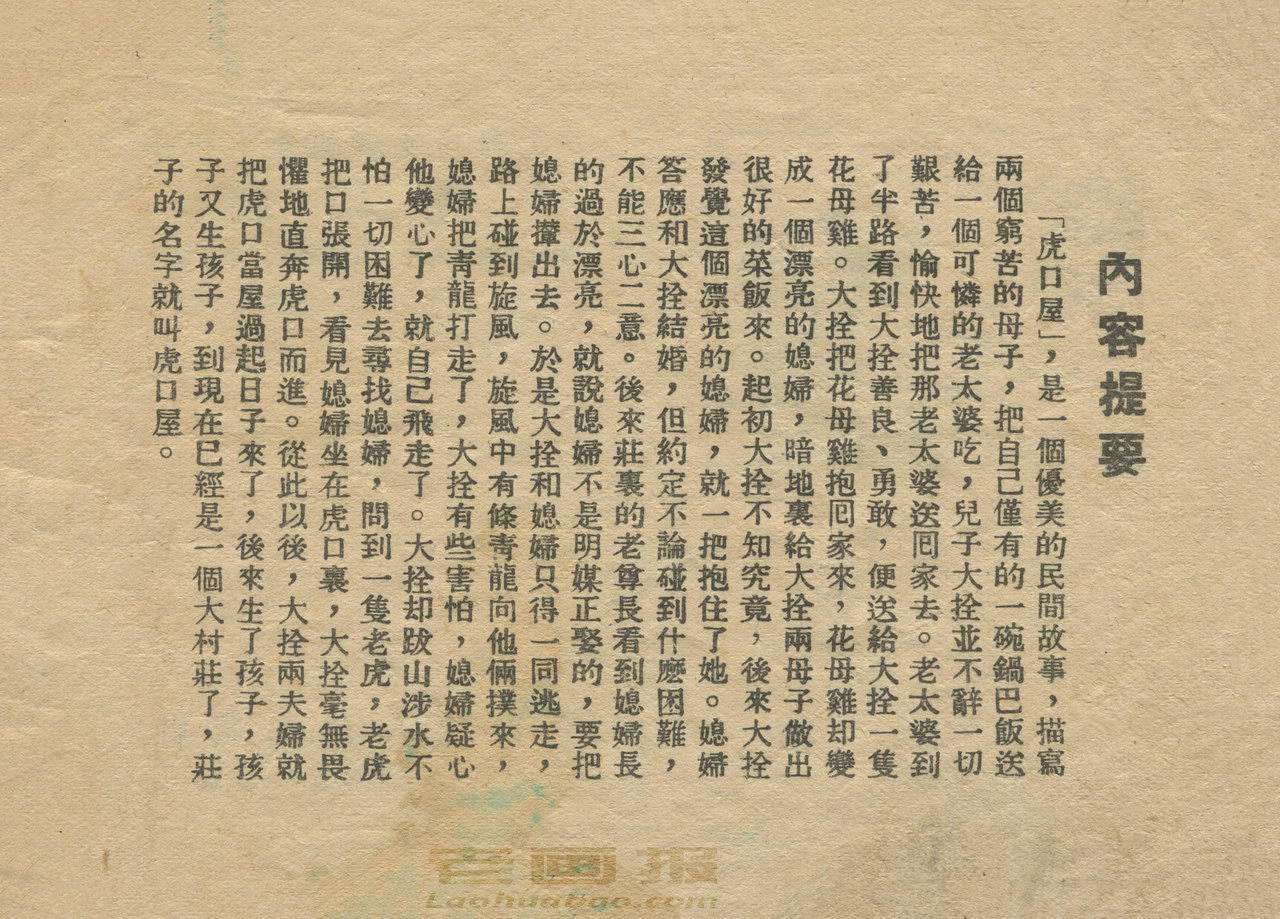 內容提要
「虎口屋」，是一個優美的民間故事，描寫
兩個窮苦的母子，把自己僅有的一碗鍋巴飯送
給一個可憐的老太婆吃，兒子大拴並不辭一切
艱苦，愉快地把那老太婆送囘家去。老太婆到
了半路看到大拴善良、勇敢，便送給大拴一隻
花母雞。大拴把花母雞抱囘家來，花母雞却變
成一個漂亮的媳婦，暗地裏給大拴兩母子做出
很好的菜飯來。起初大拴不知究竟，後來大拴
發覺這個漂亮的媳婦，就一把抱住了她。媳婦
答應和大拴結婚，但約定不論碰到什麽困難，
不能三心二意。後來莊裏的老尊長看到媳婦長
的過於漂亮，就說媳婦不是明媒正娶的，要把
媳婦攆出去。於是大拴和媳婦只得一同逃走，
路上碰到旋風，旋風中有條靑龍向他倆撲來，
媳婦把靑龍打走了，大拴有些害怕，媳婦疑心
他變心了，就自己飛走了。大拴却跋山涉水不
怕一切困難去尋找媳婦，問到一隻老虎，老虎
把口張開，看見媳婦坐在虎口裏，大拴毫無畏
懼地直奔虎口而進。從此以後，大拴兩夫婦就
把虎口當屋過起日子來了，後來生了孩子，孩
子又生孩子，到現在已經是一個大村莊了，莊
子的名字就叫虎口屋。
老画报
Laohuabao.com